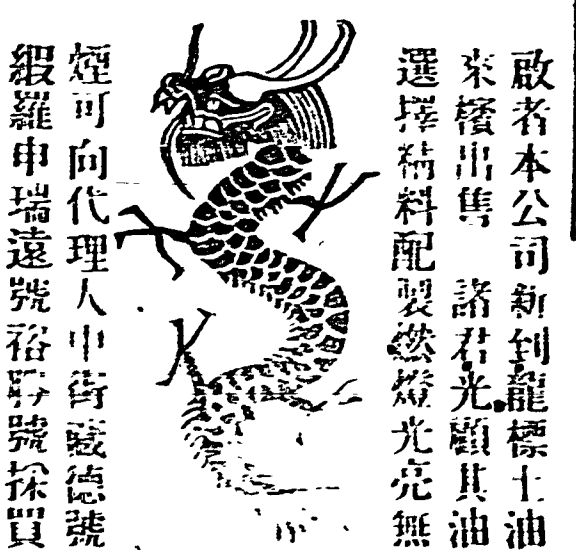 啟者本公司新到龍標土油
來出售 諸君光顧其油
選擇精料配製燃燈光亮無
煙可向代理人中街德號
緞羅申瑞遠號裕號採買